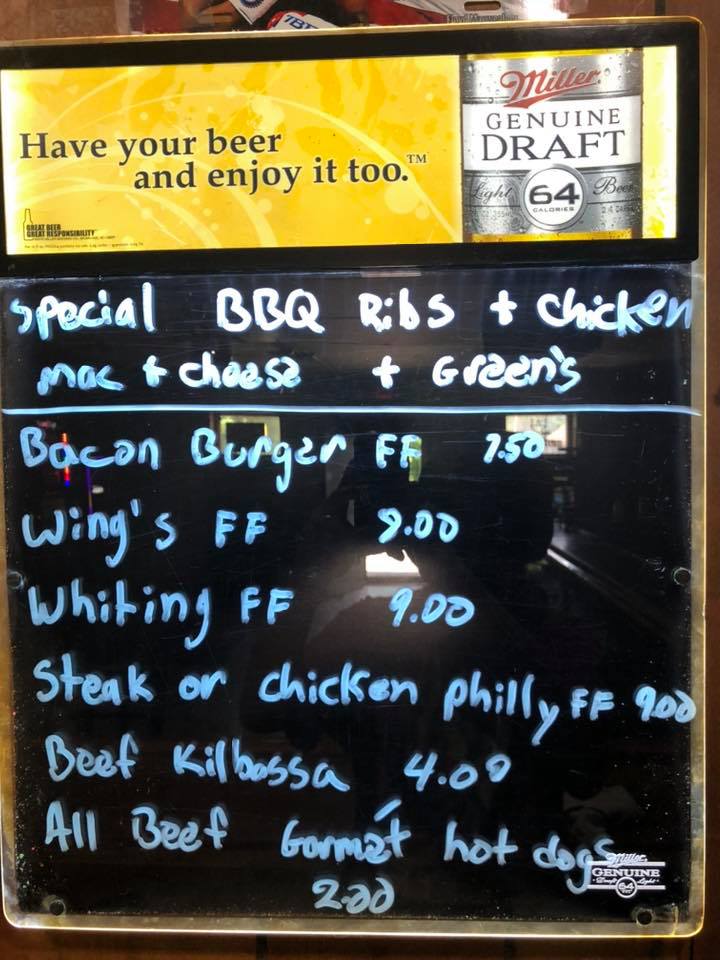 Have your beer
and enjoy it too.™
GREAT BEER
GREAT RESPONSIBILITY
Miller
GENUINE
DRAFT
Light 64 Beer
CALORIES
Special BBQ Ribs + chicken
mac + cheese + Green's
Bacon Burger FF 7.50
Wing's FF 9.00
Whiting FF 9.00
Steak or chicken philly FF 9.00
Beef Kilbossa 4.00
All Beef Gormét hot dogs
2.00
Miller
GENUINE
Draft Light
64